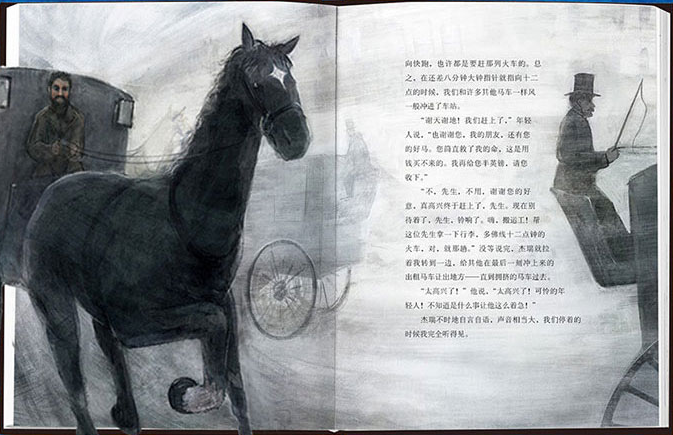 向快跑，也许都是要赶那列火车的。总
之，在还差八分钟大钟指针就指向十二
点的时候，我们和许多其他马车一样风
一般冲进了车站。
“谢天谢地！我们赶上了，”年轻
人说，“也谢谢您，我的朋友，还有您
的好马。您简直救了我的命，这是用
钱买不来的。我再给您半英镑，请您
收下。”
“不，先生，不用，谢谢您的好
意，真高兴终于赶上了，先生。现在别
待着了，先生，铃响了。嗨，搬运工！帮
这位先生拿一下行李，多佛线十二点钟的
火车，对，就那趟。”没等说完，杰瑞就拉
着我转到一边，给其他在最后一刻冲上来的
出租马车让出地方——直到拥挤的马车过去。
“太高兴了！”他说，“太高兴了！可怜的年
轻人！不知道是什么事让他这么着急！”
杰瑞不时地自言自语，声音相当大，我们停着的
时候我完全听得见。